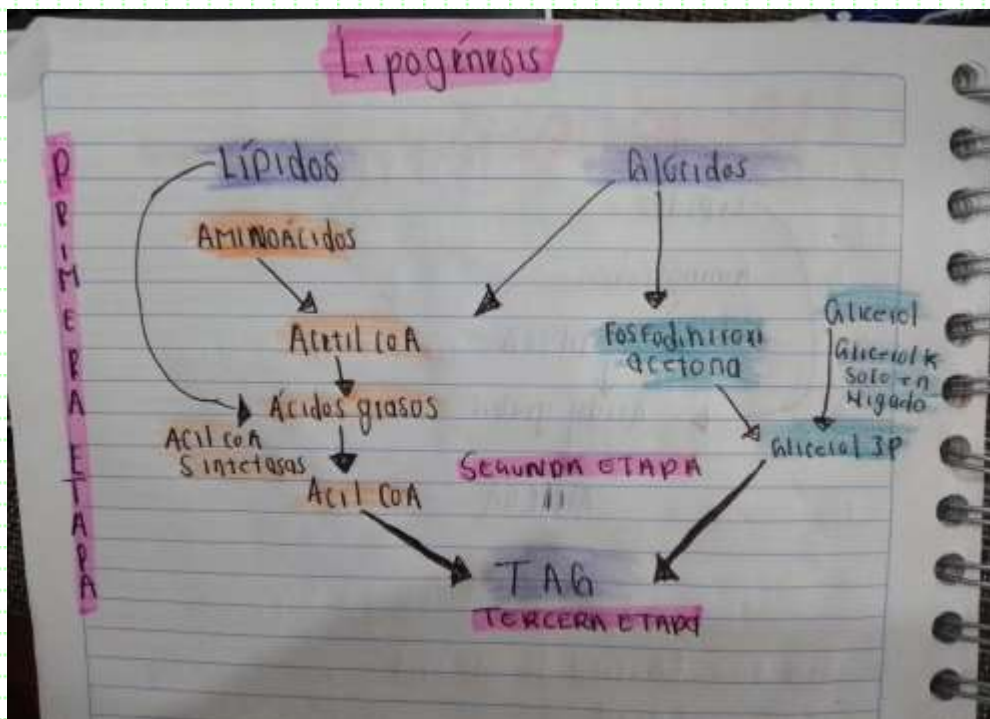 Lipogénesis
PRIMERA ETAPA
Lípidos
Glúcidos
AMINOÁCIdos
Acetil coA
Fosfodihiroxi
acetona
Glicerol
Glicerol K
Solo en
Higado
Ácidos grasos
Acil coA
Sintetasas
Glicerol 3P
SEGUNDA ETAPA
Acil CoA
TAG
TERCERA ETAPA